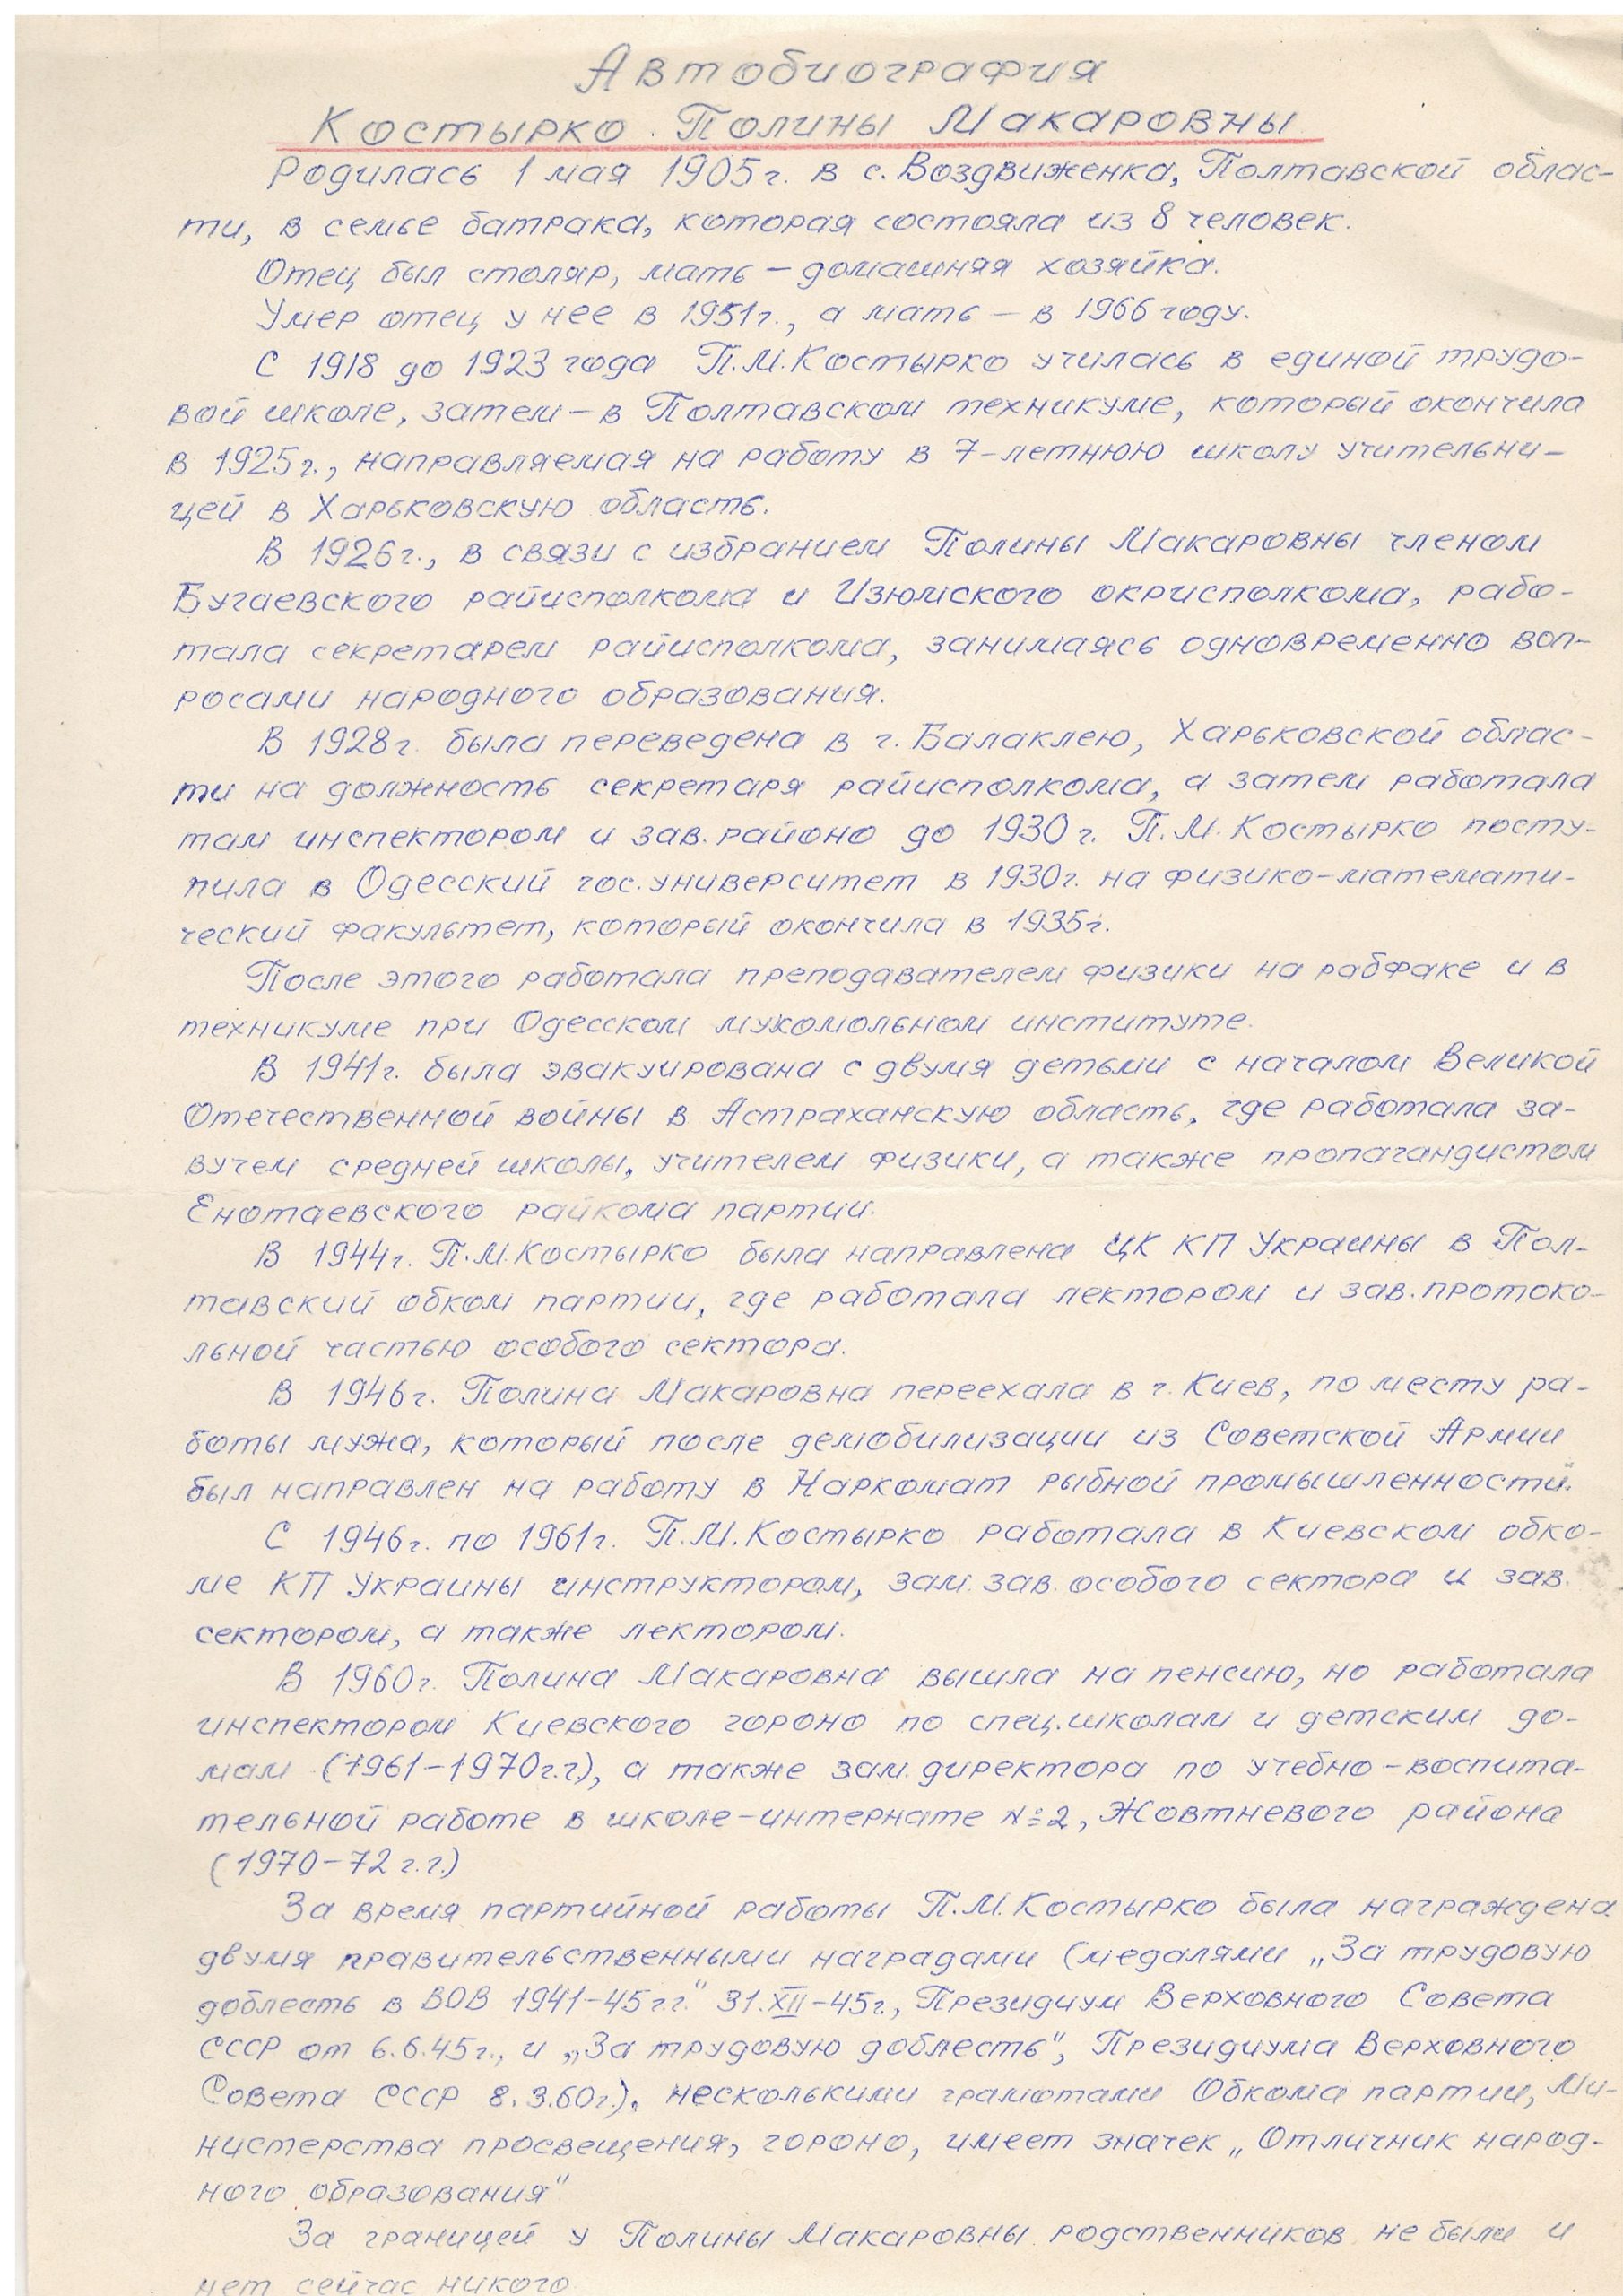 Автобиография
Костырко Полины Макаровны
Родилась 1 мая 1905г. в с. Воздвиженка, Полтавской облас-
ти, в семье батрака, которая состояла из 8 человек.
Отец был столяр, мать – домашняя хозяйка.
Умер отец у нее в 1951г., а мать – в 1966 году.
С 1918 до 1923 года П.М.Костырко училась в единой трудо-
вой школе, затем – в Полтавском техникуме, который окончила
в 1925г., направляемая на работу в 7-летнюю школу учительни-
цей в Харьковскую область.
В 1926г., в связи с избранием Полины Макаровны членом
Бугаевского райисполкома и Изюмского окрисполкома, рабо-
тала секретарем райисполкома, занимаясь одновременно воп-
росами народного образования.
В 1928г. была переведена в г. Балаклею, Харьковской облас-
ти на должность секретаря райисполкома, а затем работала
там инспектором и зав. районо до 1930г. П.М.Костырко посту-
пила в Одесский гос. университет в 1930г. на физико-математи-
ческий факультет, который окончила в 1935г.
После этого работала преподавателем физики на рабфаке и в
техникуме при Одесском мукомольном институте.
В 1941г. была эвакуирована с двумя детьми с началом Великой
Отечественной войны в Астраханскую область, где работала за-
вучем средней школы, учителем физики, а также пропагандистом
Енотаевского райкома партии.
В 1944г. П.М.Костырко была направлена ЦК КП Украины в Пол-
тавский обком партии, где работала лектором и зав. протоко-
льной частью особого сектора.
В 1946г. Полина Макаровна переехала в г. Киев, по месту ра-
боты мужа, который после демобилизации из Советской Армии
был направлен на работу в Наркомат рыбной промышленности.
С 1946г. по 1961г. П.М.Костырко работала в Киевском обко-
ме КП Украины инструктором, зам. зав. особого сектора и зав.
сектором, а также лектором.
В 1960г. Полина Макаровна вышла на пенсию, но работала
инспектором Киевского гороно по спец.школам и детским до-
мам (1961–1970г.г), а также зам. директора по учебно-воспита-
тельной работе в школе-интернате №2, Жовтневого района
(1970–72 г.г.)
За время партийной работы П.М.Костырко была награждена
двумя правительственными наградами (медалями „За трудовую
доблесть в ВОВ 1941–45г.г." 31.XII-45г., Президиум Верховного Совета
СССР от 6.6.45г., и „За трудовую доблесть", Президиума Верховного
Совета СССР 8.3.60г.), несколькими грамотами Обкома партии, Ми-
нистерства просвещения, гороно, имеет значек „Отличник народ-
ного образования"
За границей у Полины Макаровны родственников не были и
нет сейчас никого